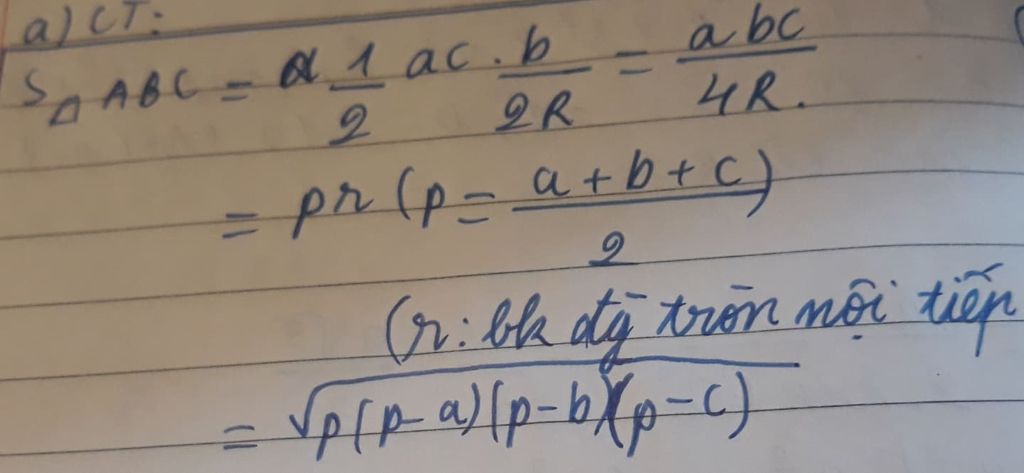 a) CT:
S△ABC = 1/2 ac . b/2R = abc/4R.
= pr (p = a+b+c/2)
(r: bk đg tròn nội tiếp
= √p(p-a)(p-b)(p-c)